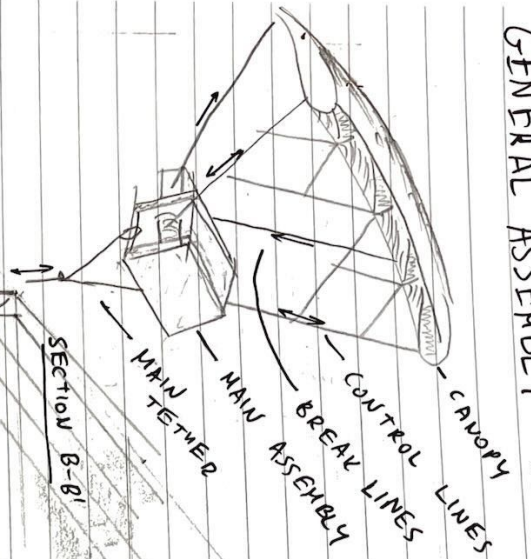 GENERAL ASSEMBLY
CANOPY
CONTROL LINES
BREAK LINES
MAIN ASSEMBLY
MAIN TETHER
SECTION B-B'